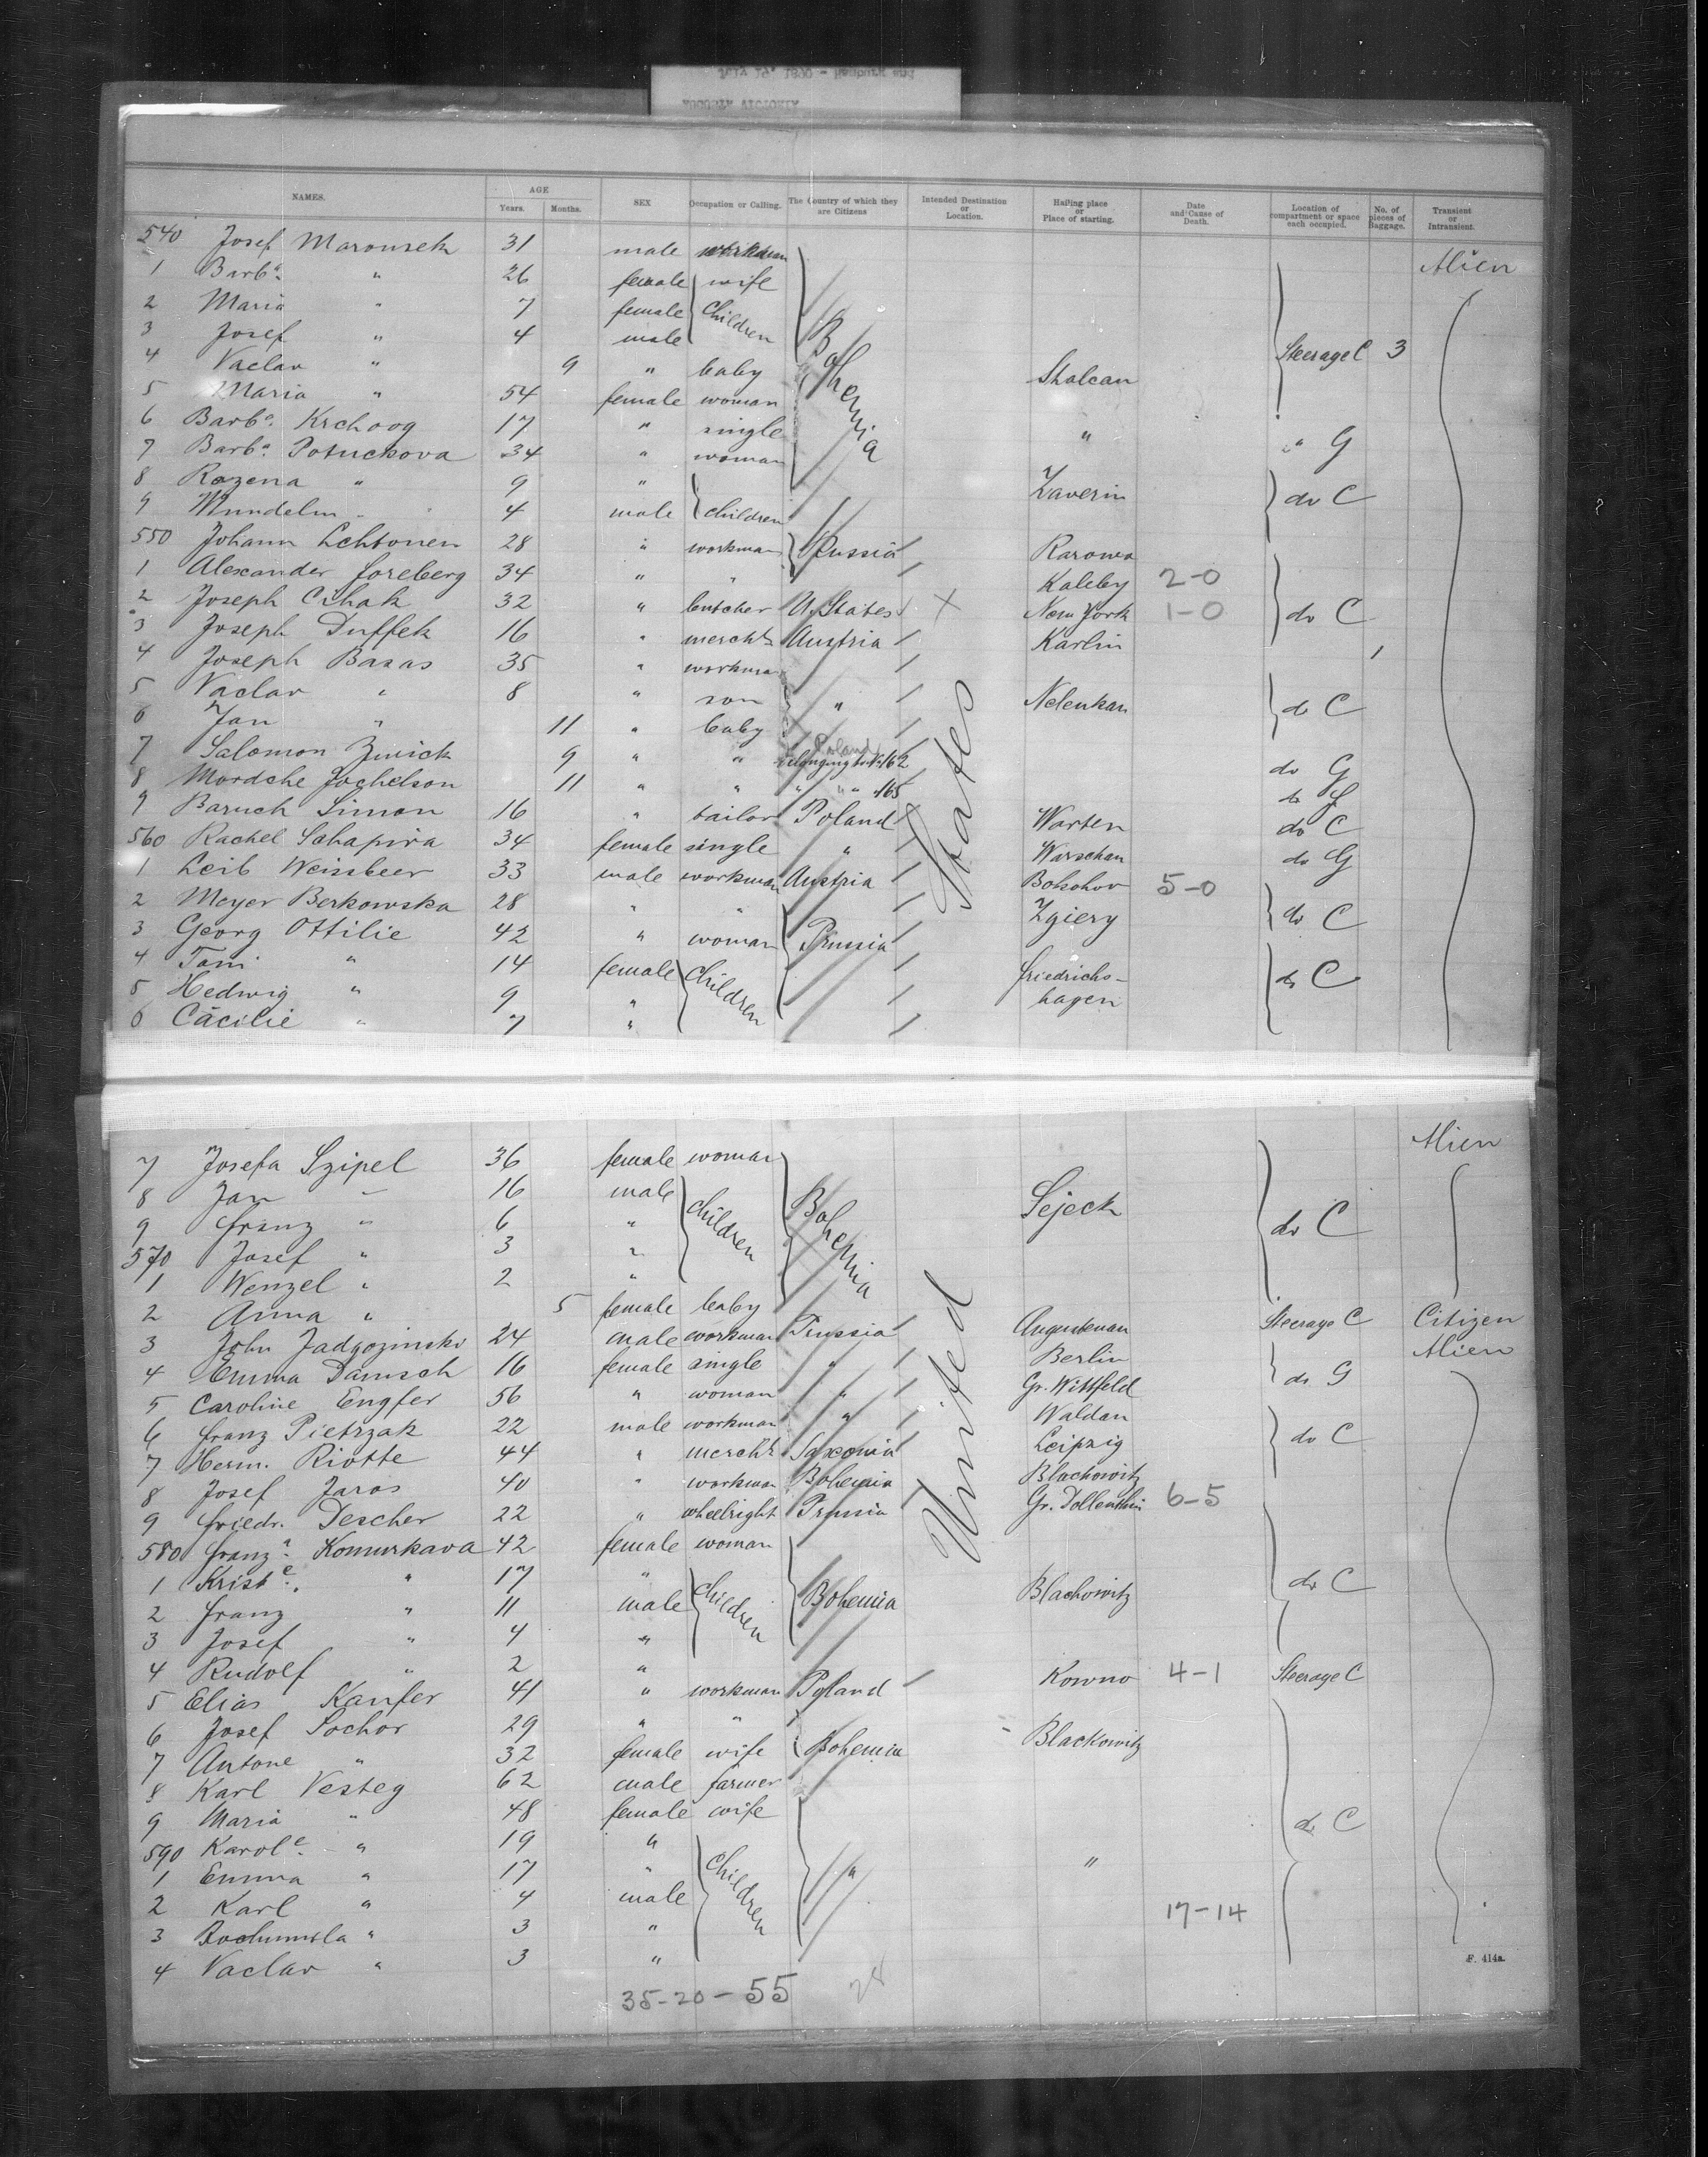 NAMES. AGE Years. Months. SEX Occupation or Calling. The Country of which they are Citizens Intended Destination or Location. Hailing place or Place of starting. Date and Cause of Death. Location of compartment or space each occupied. No. of pieces of Baggage. Transient or Intransient.
540 Josef Marousek 31 male workman Alien
1 Barbª. " 26 female wife
2 Maria " 7 female children
3 Josef " 4 male Bohemia
4 Vaclav " 9 " baby Skalcan Steerage C 3
5 Maria " 54 female woman
6 Barbª. Krchoog 17 " single " " G
7 Barbª. Potuckova 34 " woman
8 Rozena " 9 " Zaverin do C
9 4 male children
550 Johann Lehtonen 28 " workman Russia
1 Alexander Foreberg 34 " " Kaleby 2-0
2 Joseph Cihak 32 " butcher U. States X New York 1-0 do C
3 Joseph Duffek 16 " mercht. Austria Karlin
4 Joseph Basas 35 " workman 1
5 Vaclav " 8 " son " Nelenkau do C
6 Jan " 11 " baby
7 Salomon Zwick 9 " " Poland belonging to No 162 do G
8 Mordche Jochelson 11 " " " " " 165 do G
9 Baruch Simon 16 " tailor Poland Warten do C
560 Rachel Schapira 34 female single " Warschau do G
1 Leib Weissbeer 33 male workman Austria Bohohov 5-0
2 Meyer Berkowska 28 " " Zgiery do C
3 Georg Ottilie 42 " woman Prussia
4 Toni " 14 female children Friedrichs- do C
5 Hedwig " 9 " hagen
6 Cäcilie " 7 "
States
7 Josefa Szipel 36 female woman Alien
8 Jan " 16 male children Bohemia Sejeck
9 Franz " 6 " do C
570 Josef " 3 "
1 Wenzel " 2 "
2 Anna " 5 female baby
3 John Jadgozinski 24 male workman Prussia Steerage C Citizen
4 Emma Damsch 16 female single " Berlin Alien
5 Caroline Engfer 56 " woman " Gr. Wittfeld do G
6 Franz Pietrzak 22 male workman " Waldau
7 Herm. Riotte 44 " mercht. Saxonia Leipzig do C
8 Josef Jaros 40 " workman Bohemia Blachowitz
9 Friedr. Descher 22 " wheelright Prussia 6-5
580 Franzª. Komurkava 42 female woman
1 Kristᵉ. " 17 " children Bohemia Blachowitz do C
2 Franz " 11 male
3 Josef " 4 "
4 Rudolf " 2 "
5 Elias Kaufer 41 " workman Poland Kowno 4-1 Steerage C
6 Josef Sochor 29 " "
7 Antone " 32 female wife Bohemia Blackowitz
8 Karl Vesteg 62 male farmer
9 Maria " 48 female wife do C
590 Karolᵉ. " 19 " children
1 Emma " 17 " " "
2 Karl " 4 male
3 " 3 " 17-14
4 Vaclav " 3 "
United
F. 414a.
35-20-55 28